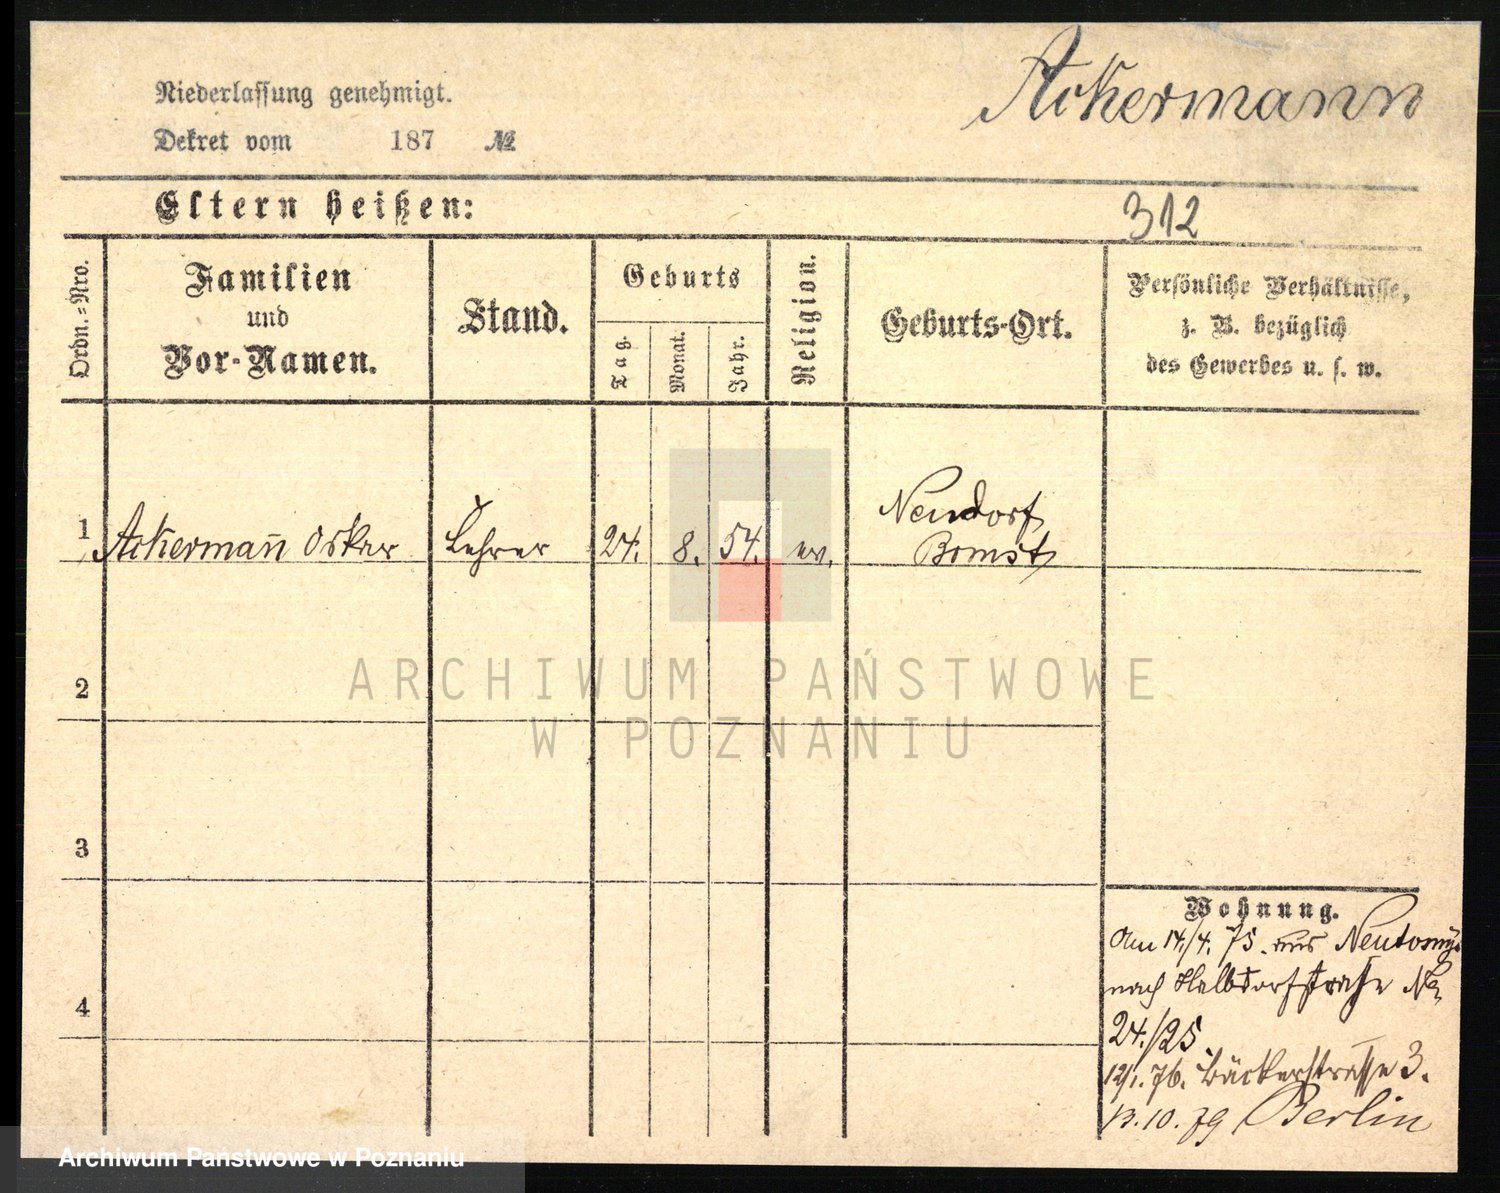 Ackermann
Niederlassung genehmigt.
Dekret vom 187 №
Eltern heißen:
312
Ordn.-Nro.
Familien
und
Vor-Namen.
Stand.
Geburts
Tag.
Monat.
Jahr.
Religion.
Geburts-Ort.
Persönliche Verhältnisse,
z. B. bezüglich
des Gewerbes u. s. w.
1 Ackerman̄ Oskar Lehrer 24. 8. 54. ev. Neudorf
Bomst
2
3
4
ARCHIWUM PAŃSTWOWE
W POZNANIU
Wohnung.
Am 14./4. 75. aus Neutomy.
nach Halbdorfstraße No
24./25
12/1. 76. Bäckerstrasse 3.
13.10.79 Berlin
Archiwum Państwowe w Poznaniu